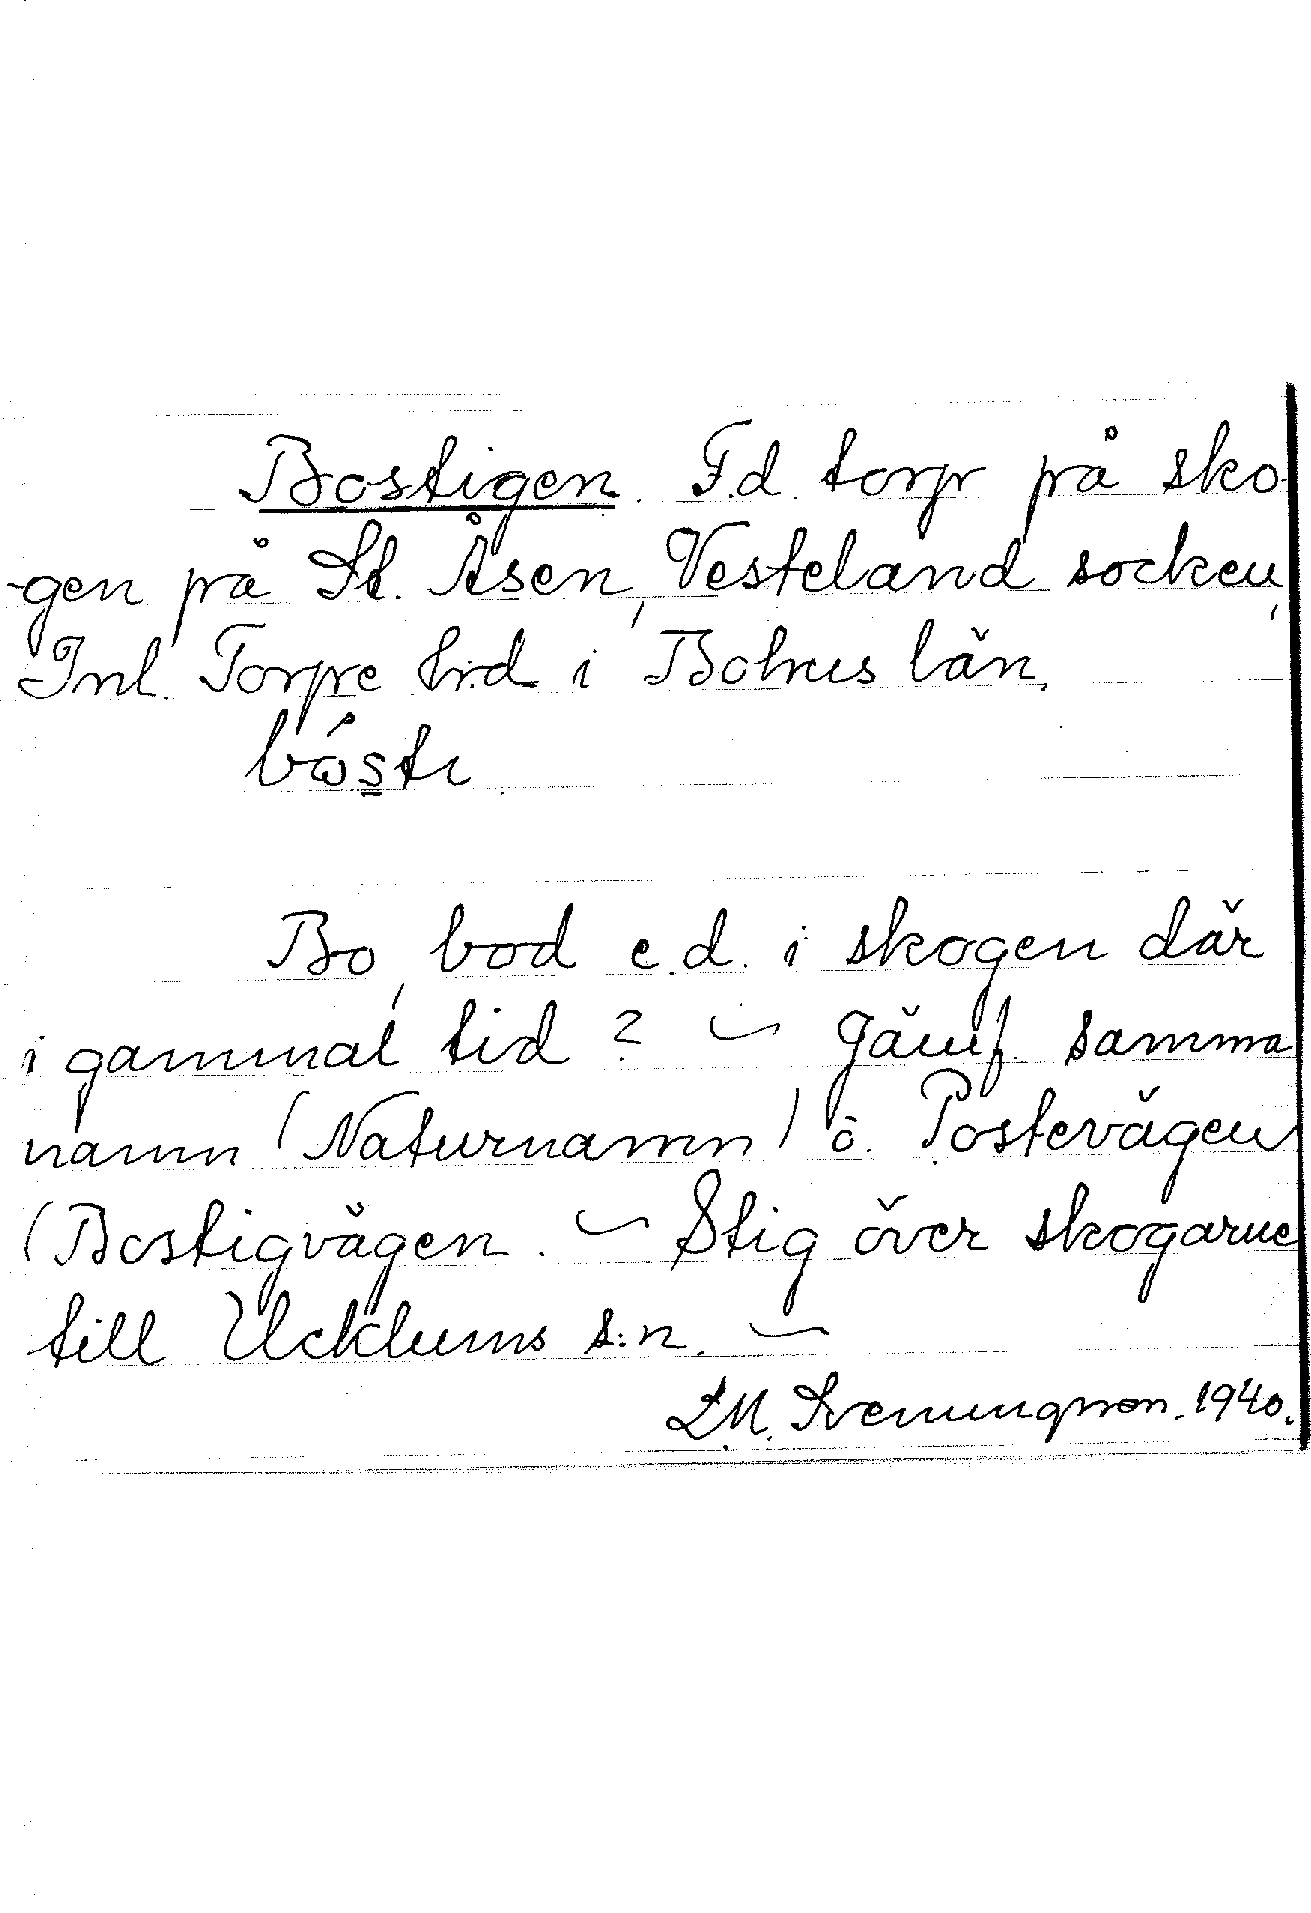 Bostigen. F.d. torp på sko-
-gen på St. Åsen, Vesteland socken,
Inl. Torpe hrd i Bohus län.
Bo, bod e.d. i skogen där
i gammal tid? ~ Jämf. samma
namn (Naturnamn) o. Postevägen
(Bostigvägen. ~ Stig över skogarne
till Ucklums s:n. ~
E.M. Svenungsson. 1940.